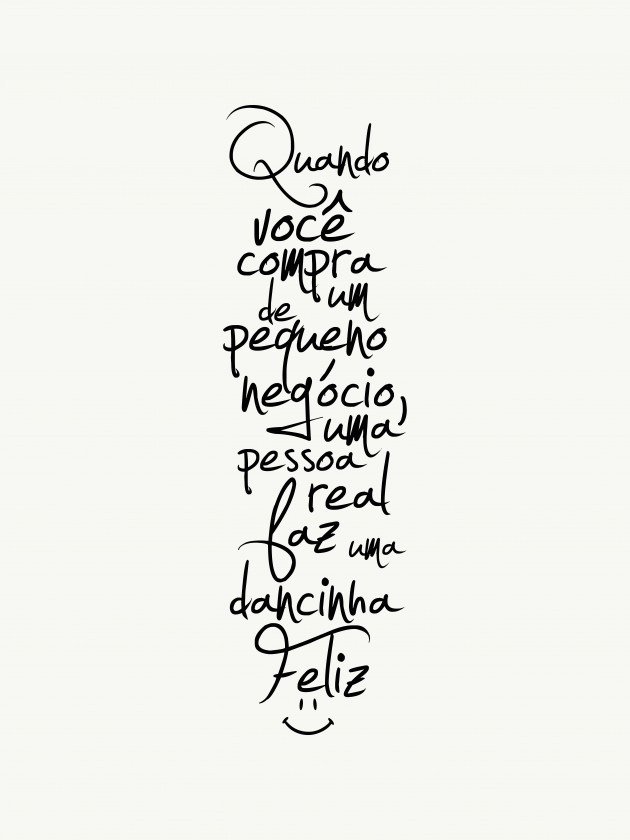 Quando
você
compra
de um
pequeno
negócio,
uma
pessoa
real
faz uma
dancinha
Feliz